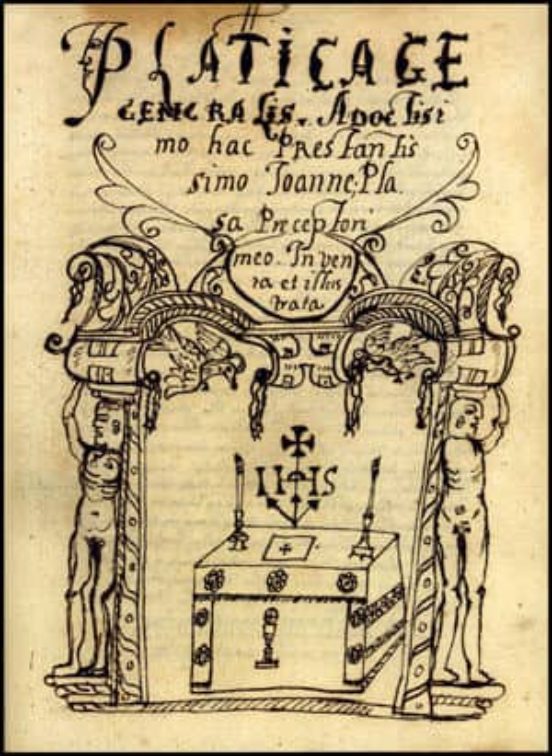 PLATICAGE
GENERALIS. ADOCTISI
mo hac PresTanTis
simo Joanne, Pla.
sa PrecepTori
meo. Inven
ra et illus
trata
IHS